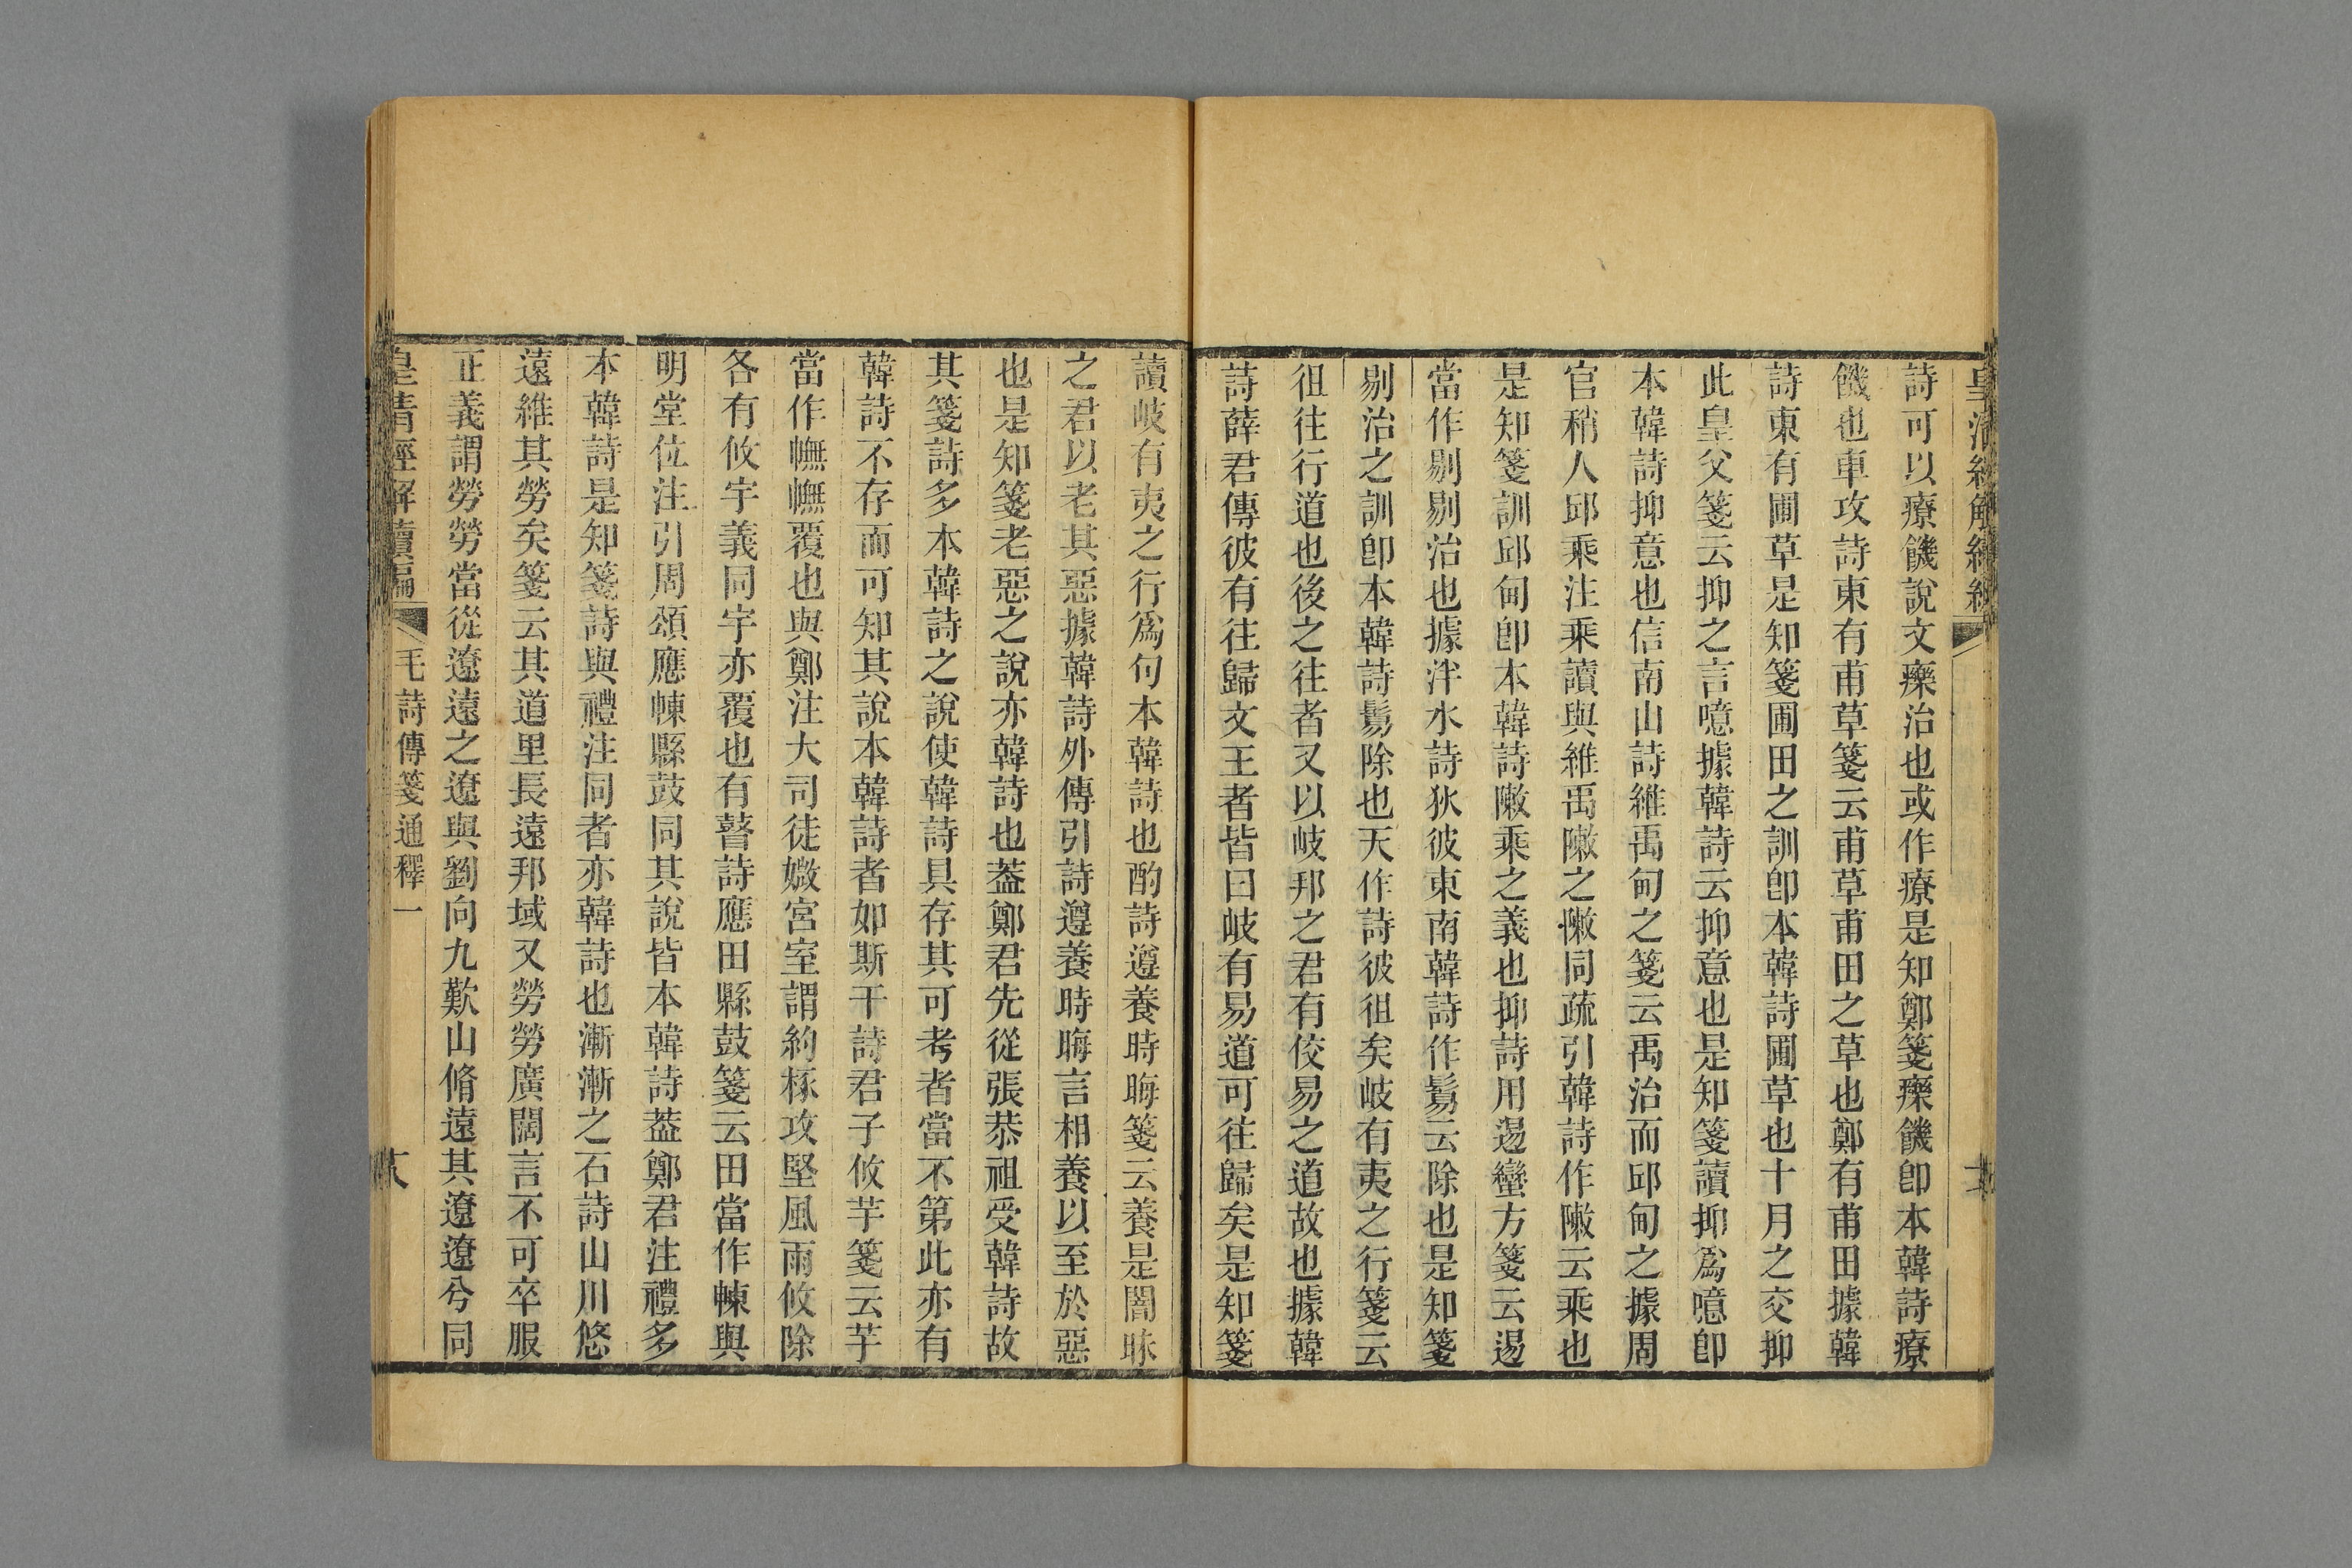 皇清經解續編
詩可以療饑說文𤻲治也或作療是知鄭箋𤻲饑卽本韓詩療
饑也車攻詩東有甫草箋云甫草甫田之草也鄭有甫田據韓
詩東有圃草是知箋圃田之訓卽本韓詩圃草也十月之交抑
此皇父箋云抑之言噫據韓詩云抑意也是知箋讀抑爲噫卽
本韓詩抑意也信南山詩維禹甸之箋云禹治而邱甸之據周
官稍人邱乘注乘讀與維禹敶之敶同疏引韓詩作敶云乘也
是知箋訓邱甸卽本韓詩敶乘之義也抑詩用逷蠻方箋云逷
當作剔剔治也據泮水詩狄彼東南韓詩作鬄云除也是知箋
剔治之訓卽本韓詩鬄除也天作詩彼徂矣岐有夷之行箋云
徂往行道也後之往者又以岐邦之君有佼易之道故也據韓
詩薛君傳彼有往歸文王者皆曰岐有易道可往歸矣是知箋
讀岐有夷之行爲句本韓詩也酌詩遵養時晦箋云養是闇昧
之君以老其惡據韓詩外傳引詩遵養時晦言相養以至於惡
也是知箋老惡之說亦韓詩也葢鄭君先從張恭祖受韓詩故
其箋詩多本韓詩之說使韓詩具存其可考者當不第此亦有
韓詩不存而可知其說本韓詩者如斯干詩君子攸芋箋云芋
當作幠幠覆也與鄭注大司徒媺宮室謂約椓攻堅風雨攸除
各有攸宇義同宇亦覆也有瞽詩應田縣鼓箋云田當作朄與
明堂位注引周頌應朄縣鼓同其說皆本韓詩葢鄭君注禮多
本韓詩是知箋詩與禮注同者亦韓詩也漸漸之石詩山川悠
遠維其勞矣箋云其道里長遠邦域又勞勞廣闊言不可卒服
正義謂勞勞當從遼遠之遼與劉向九歎山脩遠其遼遼兮同
皇清經解續編 毛詩傳箋通釋一